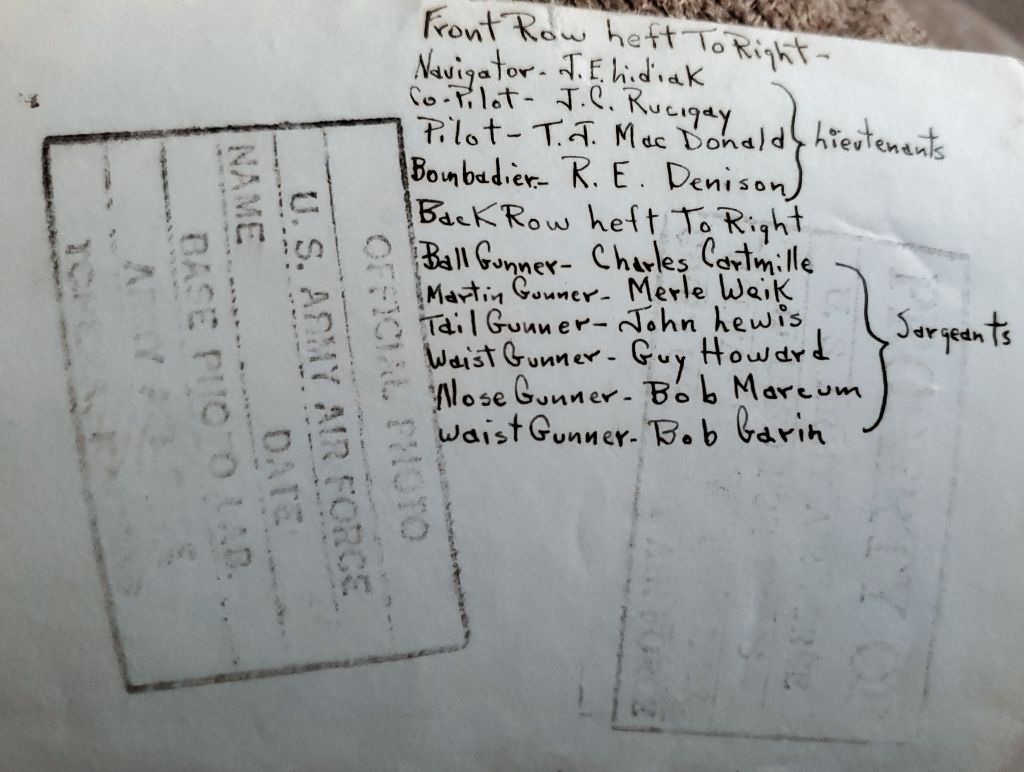 Front Row Left To Right-
Navigator- J.E. Lidiak
Co-Pilot- J.C. Rucigay
Pilot- T.J. Mac Donald
Bombadier- R. E. Denison
Lieutenants
Back Row Left To Right
Ball Gunner- Charles Cartmille
Martin Gunner- Merle Waik
Tail Gunner- John Lewis
Waist Gunner- Guy Howard
Nose Gunner- Bob Marcum
Waist Gunner- Bob Garin
Sargeants
OFFICIAL PHOTO
U.S. ARMY AIR FORCE
NAME DATE
BASE PHOTO LAB.
ARMY